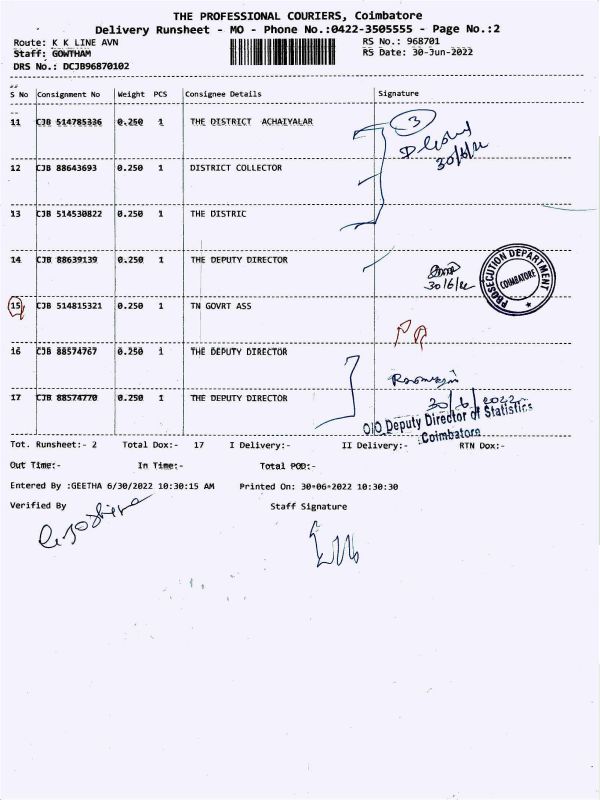 THE PROFESSIONAL COURIERS, Coimbatore
Delivery Runsheet - MO - Phone No.:0422-3505555 - Page No.:2
Route: K K LINE AVN RS No.: 968701
Staff: GOWTHAM RS Date: 30-Jun-2022
DRS No.: DCJB96870102
S No Consignment No Weight PCS Consignee Details Signature
11 CJB 514785336 0.250 1 THE DISTRICT ACHAIYALAR
3
30/6/22
12 CJB 88643693 0.250 1 DISTRICT COLLECTOR
13 CJB 514530822 0.250 1 THE DISTRIC
14 CJB 88639139 0.250 1 THE DEPUTY DIRECTOR
30/6/22
PROSECUTION DEPARTMENT
COIMBATORE
15 CJB 514815321 0.250 1 TN GOVRT ASS
16 CJB 88574767 0.250 1 THE DEPUTY DIRECTOR
17 CJB 88574770 0.250 1 THE DEPUTY DIRECTOR
30/6/2022
O/O Deputy Director of Statistics
Coimbatore
Tot. Runsheet:- 2 Total Dox:- 17 I Delivery:- II Delivery:- RTN Dox:-
Out Time:- In Time:- Total POD:-
Entered By :GEETHA 6/30/2022 10:30:15 AM Printed On: 30-06-2022 10:30:30
Verified By Staff Signature